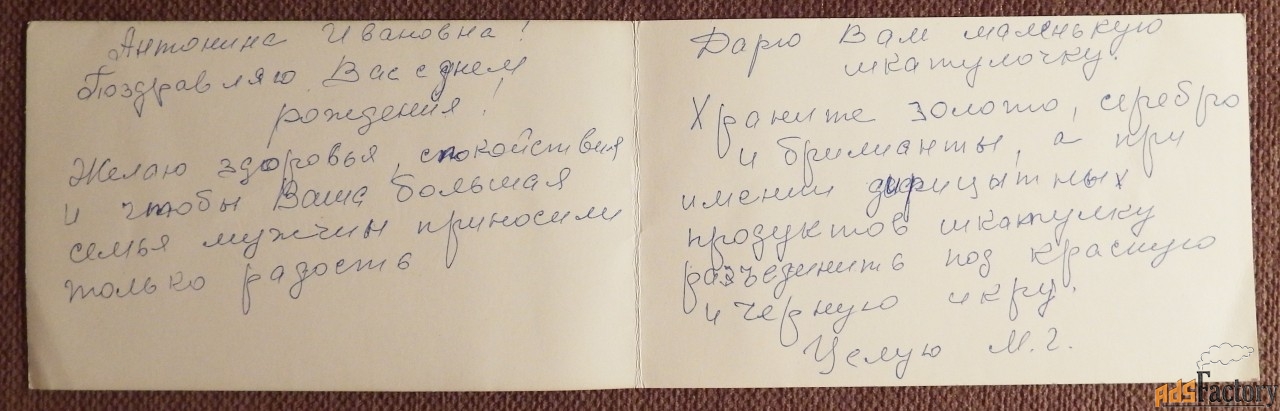 Антонина Ивановна!
Поздравляю Вас с днем
рождения!
Желаю здоровья, спокойствия
и чтобы Ваша большая
семья мужчин приносили
только радость
Дарю Вам маленькую
шкатулочку.
Храните золото, серебро
и брилианты, а при
имении дифицытных
продуктов шкатулку
разъеденить под красную
и черную икру.
Целую М.Г.
AdsFactory